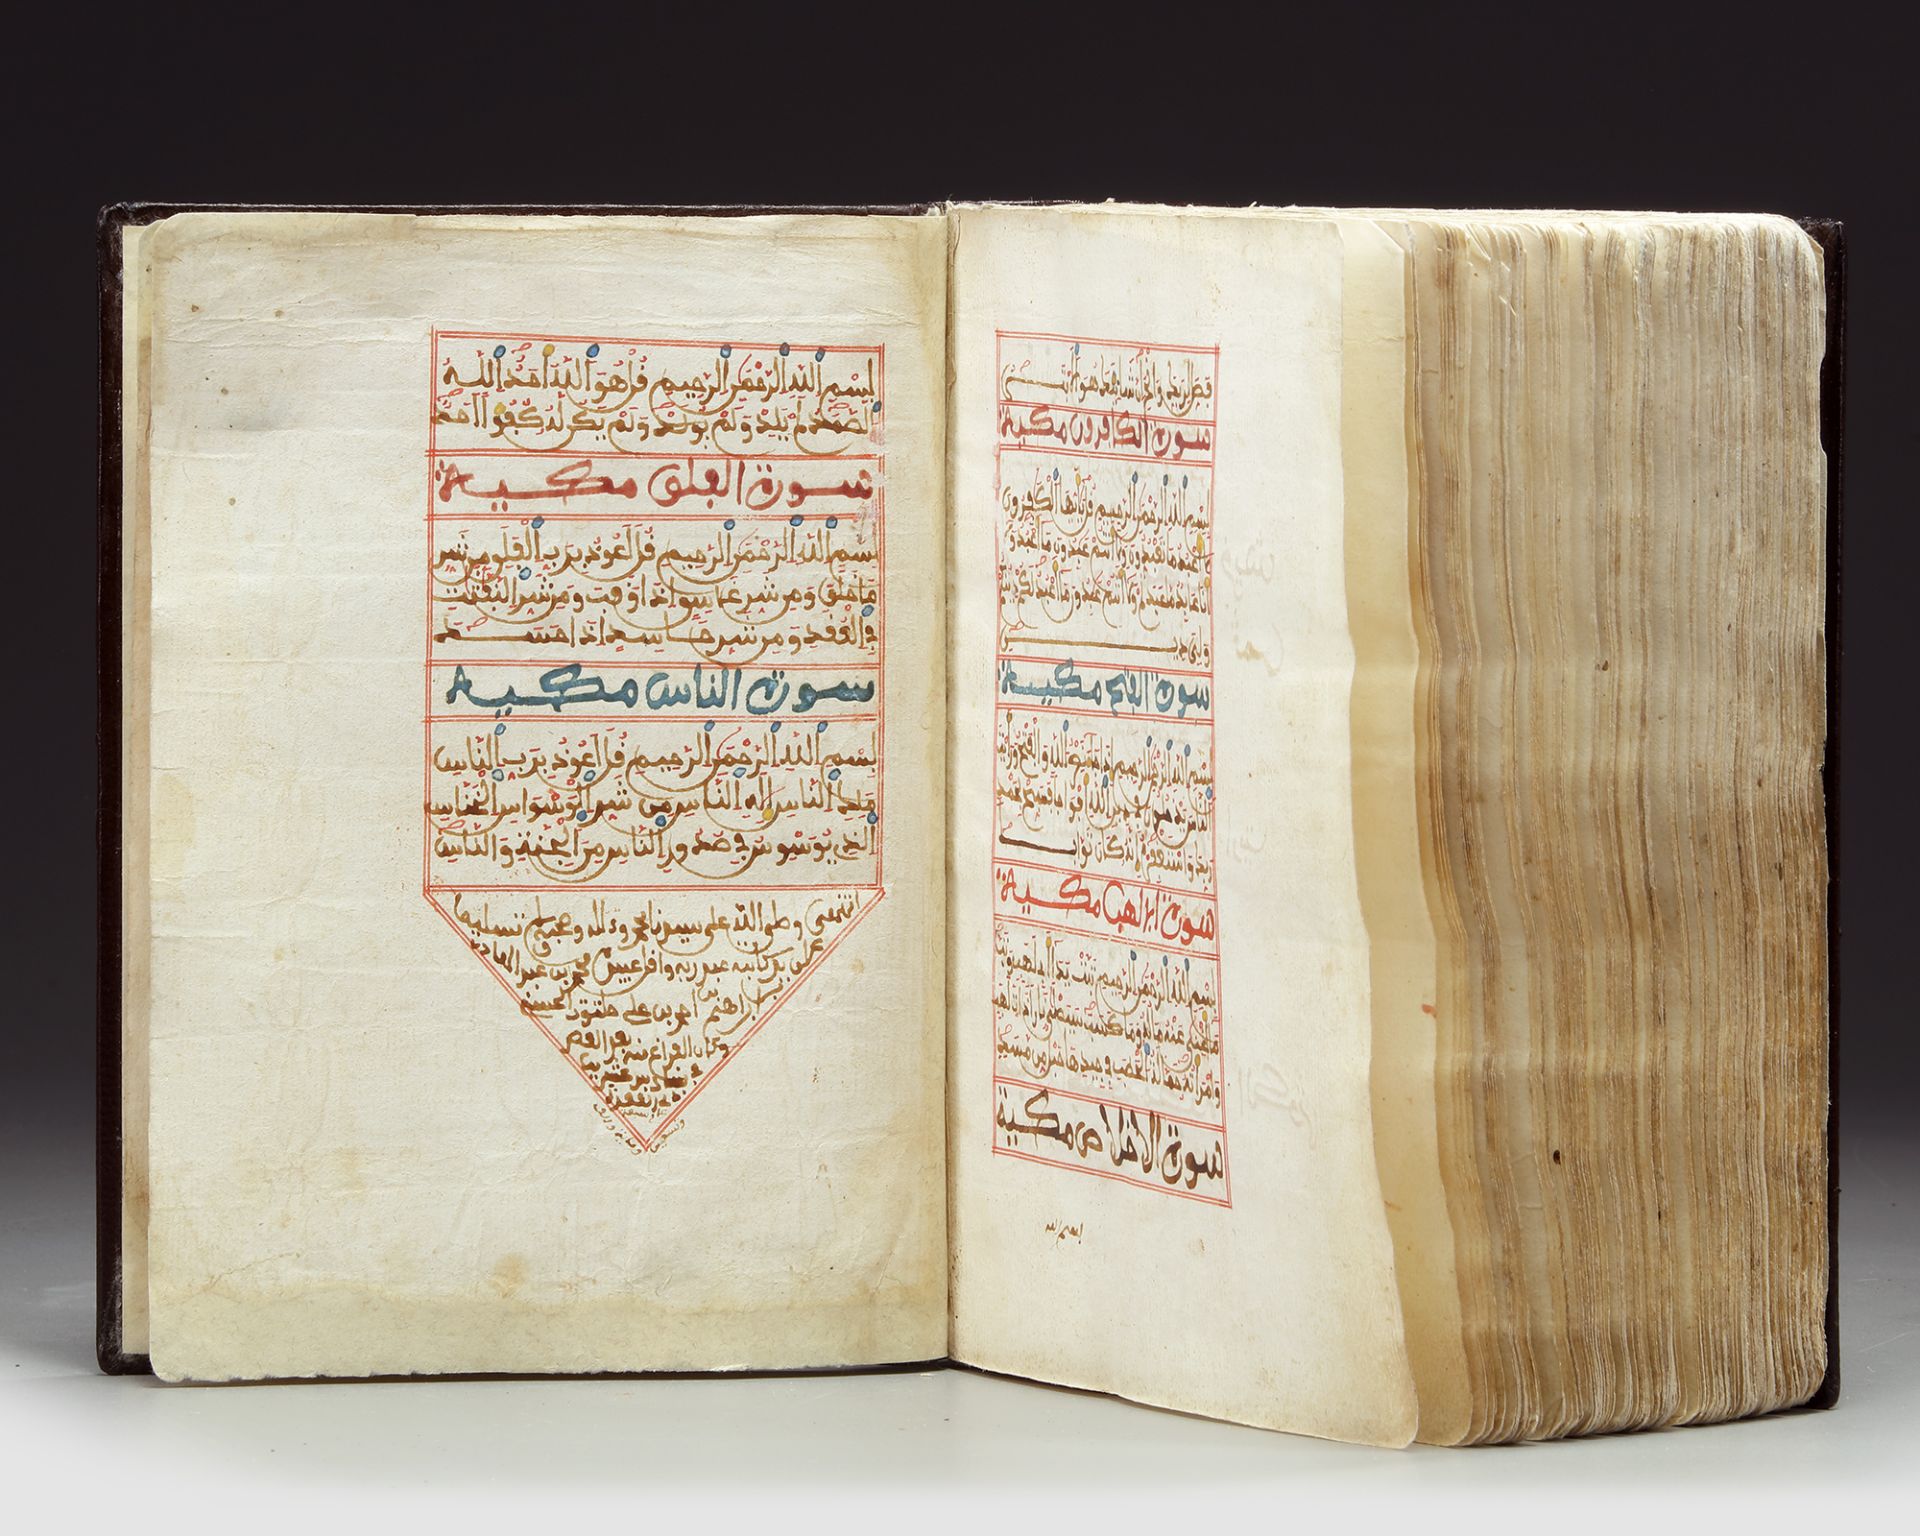 فصل لربك وانحر إن شانئك هو الابتر
سورة الكافرون مكية
بسم الله الرحمن الرحيم قل يأيها الكفرون
لا أعبد ما تعبدون ولا أنتم عبدون ما أعبد ولا
أنا عابد ما عبدتم ولا أنتم عبدون ما أعبد لكم دينكم
ولي دين
سورة الفتح مكية
بسم الله الرحمن الرحيم إذا جاء نصر الله والفتح ورأيت
الناس يدخلون في دين الله أفواجا فسبح بحمد
ربك واستغفره إنه كان توابا
سورة أبي لهب مكية
بسم الله الرحمن الرحيم تبت يدا أبي لهب وتب
ما أغنى عنه ماله وما كسب سيصلى نارا ذات لهب
وامرأته حمالة الحطب في جيدها حبل من مسد
سورة الاخلاص مكية
بسم الله
بسم الله الرحمن الرحيم قل هو الله أحد الله
الصمد لم يلد ولم يولد ولم يكن له كفؤا أحد
سورة الفلق مكية
بسم الله الرحمن الرحيم قل أعوذ برب الفلق من شر
ما خلق ومن شر غاسق إذا وقب ومن شر النفثت
في العقد ومن شر حاسد إذا حسد
سورة الناس مكية
بسم الله الرحمن الرحيم قل أعوذ برب الناس
ملك الناس إله الناس من شر الوسواس الخناس
الذي يوسوس في صدور الناس من الجنة والناس
انتهى وصلى الله على سيدنا محمد وءاله وصحبه وسلم تسليما
على يد كاتبه عبد ربه محمد بن عبد
ابراهيم بن علي
وكان الفراغ منه